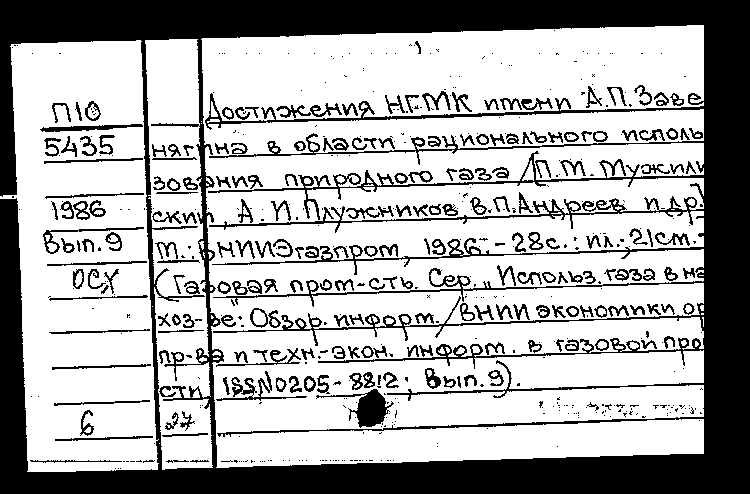 П10 Достижения НГМК имени А.П. Заве
5435 нягина в области рационального исполь
зования природного газа / [П.М. Мужили
1986 ский, А.И. Плужников, В.П. Андреев и др.]
Вып.9 М.: ВНИИЭгазпром, 1986. - 28с.: ил.; 21см. -
ОСХ (Газовая пром-сть. Сер. „Использ. газа в на
хоз-ве": Обзор. информ. / ВНИИ экономики, ор
пр-ва и техн.-экон. информ. в газовой про
сти, ISSN0205-8812; Вып. 9).
6 27